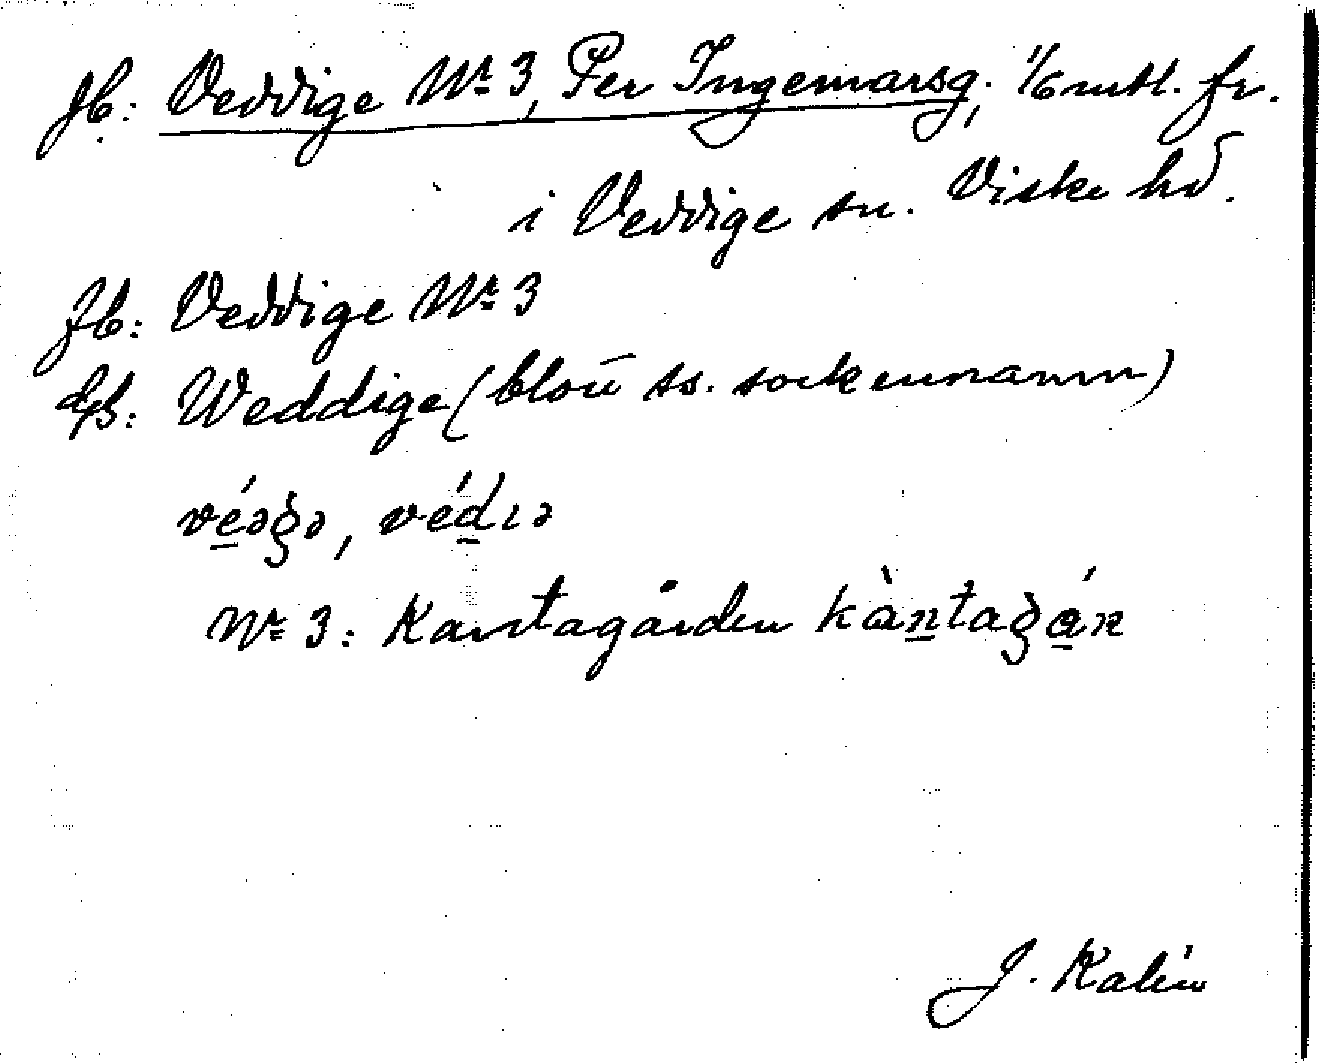 Jb: Veddige Nr 3, Per Ingemarsg. 1/6 mtl. fr.
i Veddige sn. Viske hd.
Jb: Veddige Nr 3
Gs: Weddige (blott ss. sockennamn)
Nr 3: Kantagården
J. Kalén